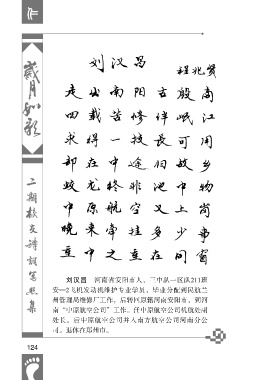 作
岁月如歌
二期校友诗词书画集
刘汉昌
程兆贤
走出南阳古殷商
四载苦修伴岷江
求得一技长可用
却在中途归故乡
蛟龙终非池中物
中原航空又上岗
晚来常挂多少事
互中之互在同窗
刘汉昌 河南省安阳市人，三中队一区队211班
安—2飞机发动机维护专业学员，毕业分配到民航兰
州管理局维修厂工作，后转回原籍河南安阳市，到河
南“中原航空公司”工作，任中原航空公司机航处副
处长，后中原航空公司并入南方航空公司河南分公
司，退休在郑州市。
124